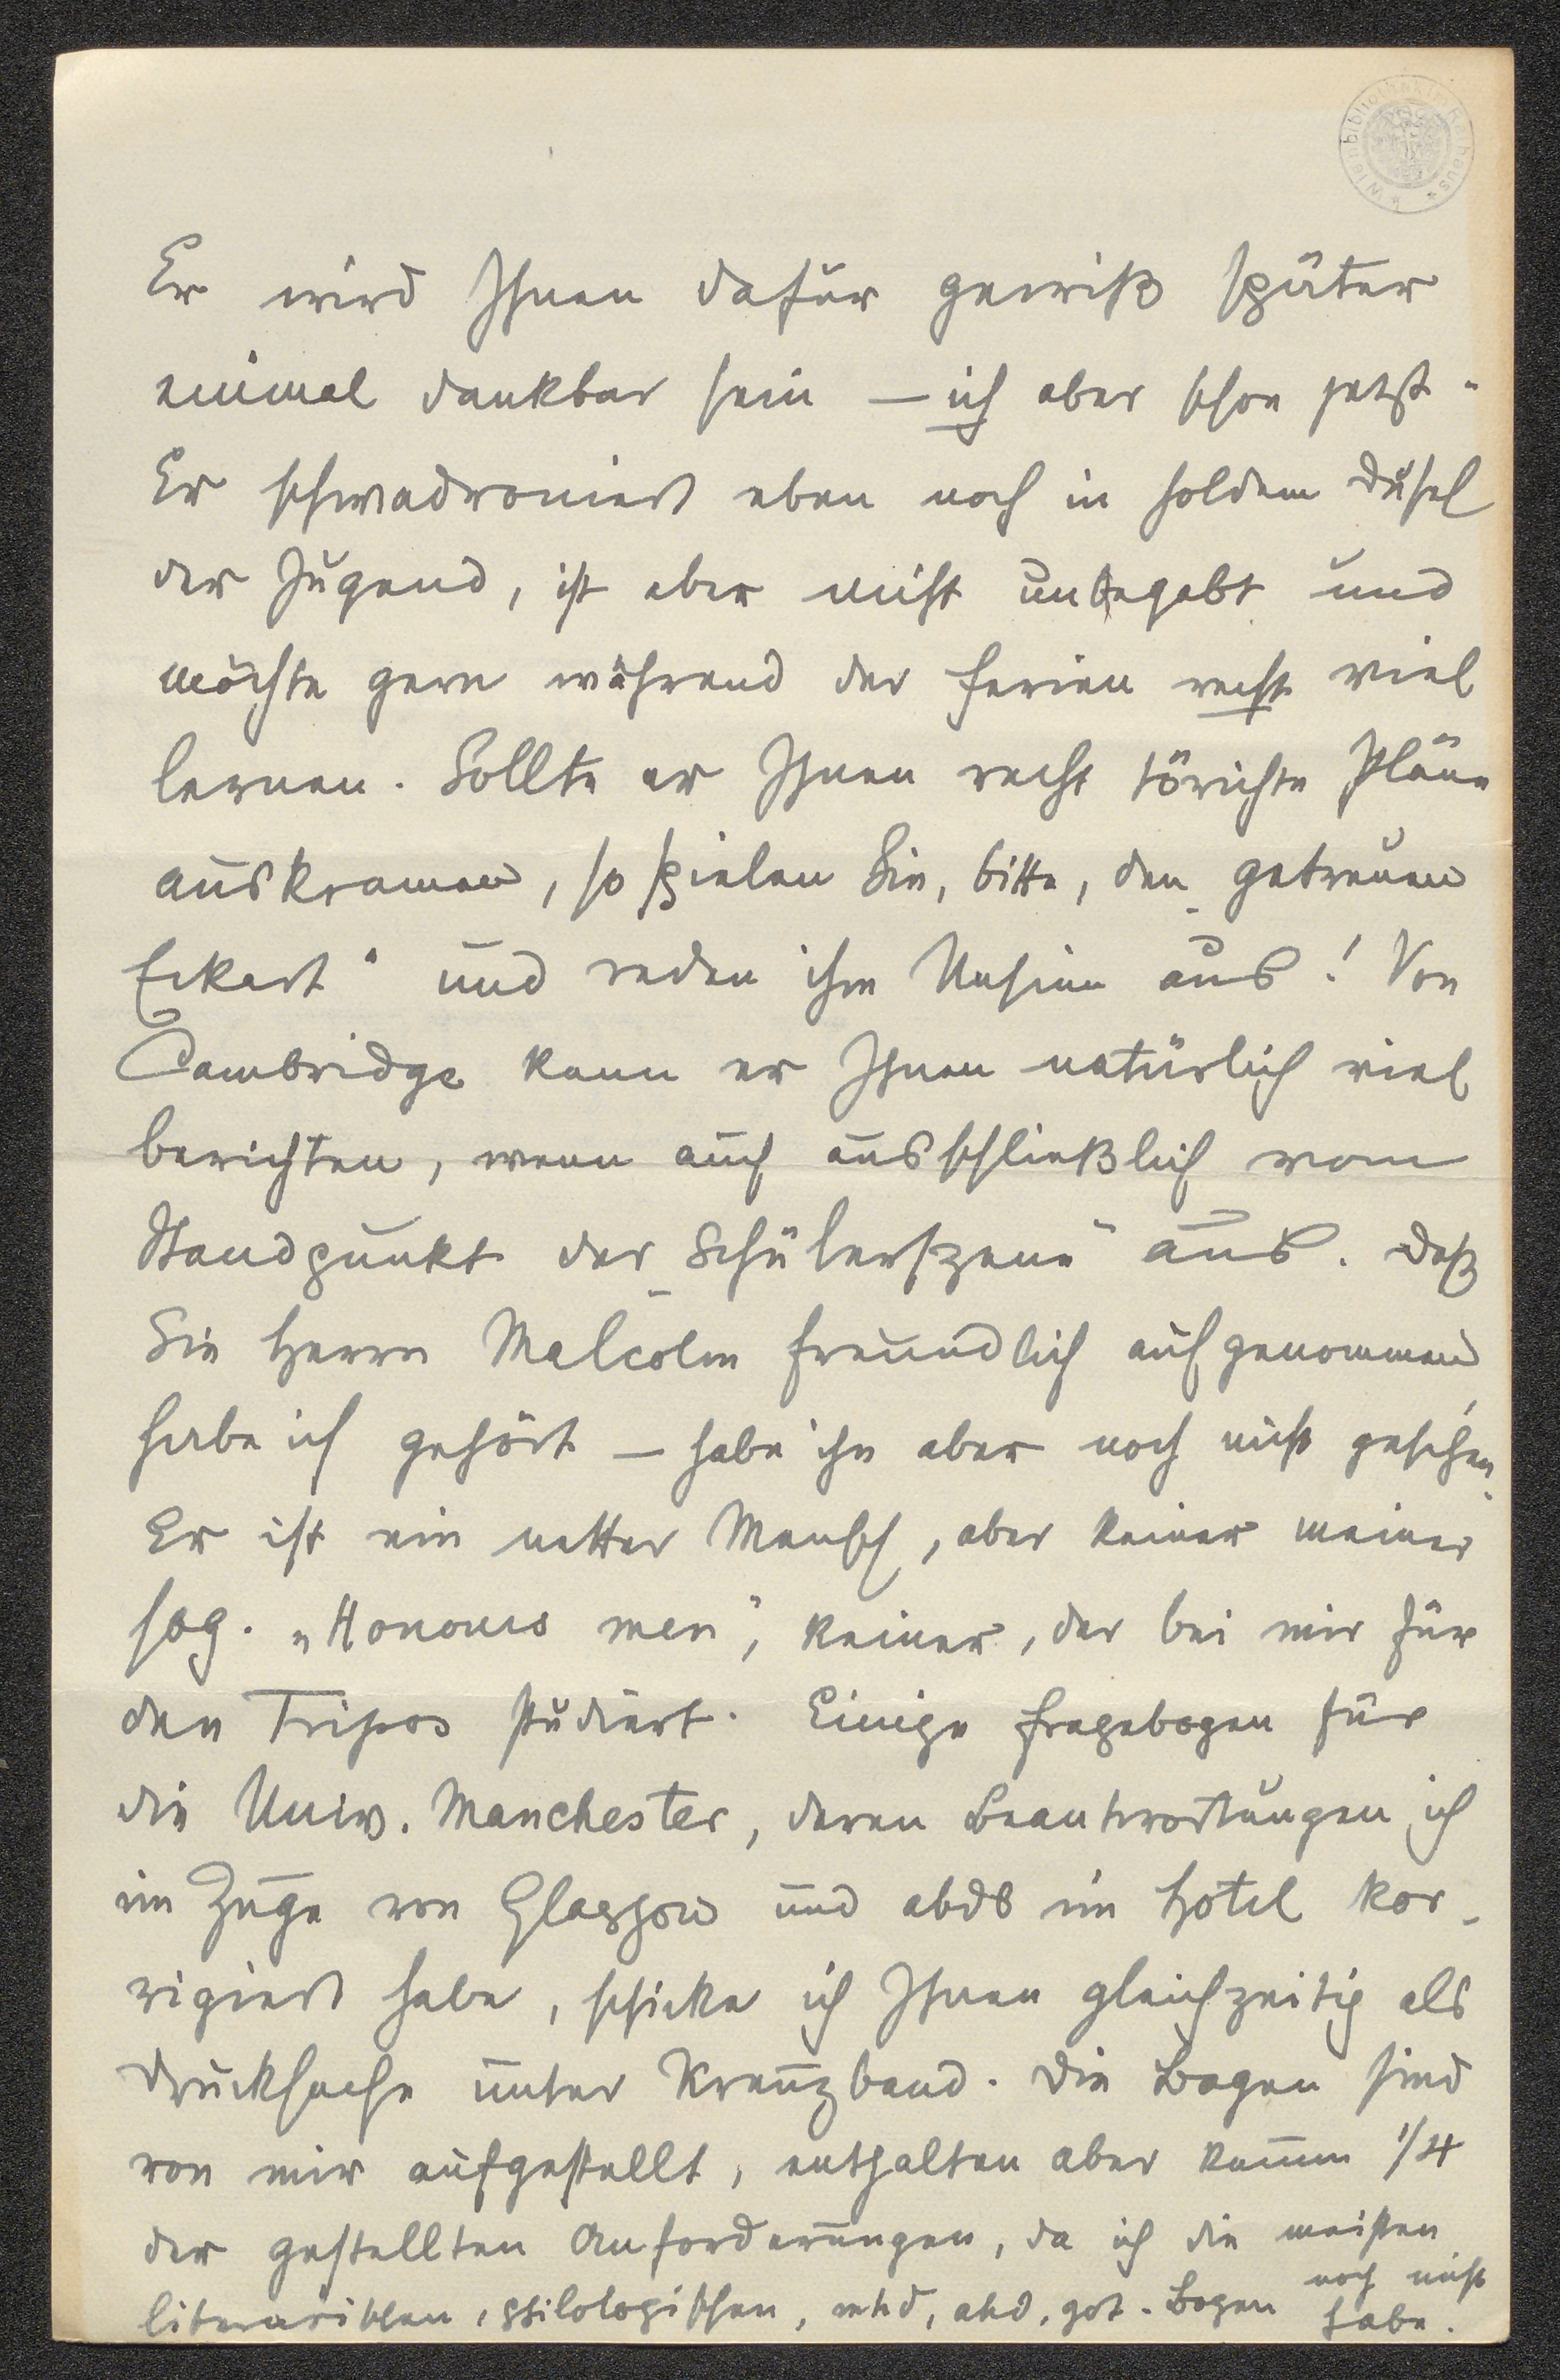 Wienbibliothek im Rathaus
Er wird Ihnen dafür gewiß später
einmal dankbar sein – ich aber schon jetzt.
Er schwadroniert eben noch in holdem Dusel
der Jugend, ist aber nicht unbegabt und
möchte gern während der Ferien recht viel
lernen. Sollte er Ihnen recht törichte Pläne
auskramen, so spielen Sie, bitte, den „getreuen
Eckart“ und reden ihm Unsinn aus! Von
Cambridge kann er Ihnen natürlich viel
berichten, wenn auch ausschließlich vom
Standpunkt der „Schülerszene“ aus. Daß
Sie Herrn Malcolm freundlich aufgenommen,
habe ich gehört – habe ihn aber noch nicht gesehen.
Er ist ein netter Mensch, aber keiner meiner
sog. „Honours men“, keiner, der bei mir für
den Tripos studiert. Einige Fragebogen für
die Univ. Manchester, deren Beantwortungen ich
im Zuge von Glasgow und abds im Hotel kor-
rigiert habe, schicke ich Ihnen gleichzeitig als
Drucksache unter Kreuzband. Die Bogen sind
von mir aufgestellt, enthalten aber kaum 1/4
der gestellten Anforderungen, da ich die meisten
literarischen, philologischen, mhd, ahd, got. Bogen noch nicht
habe.